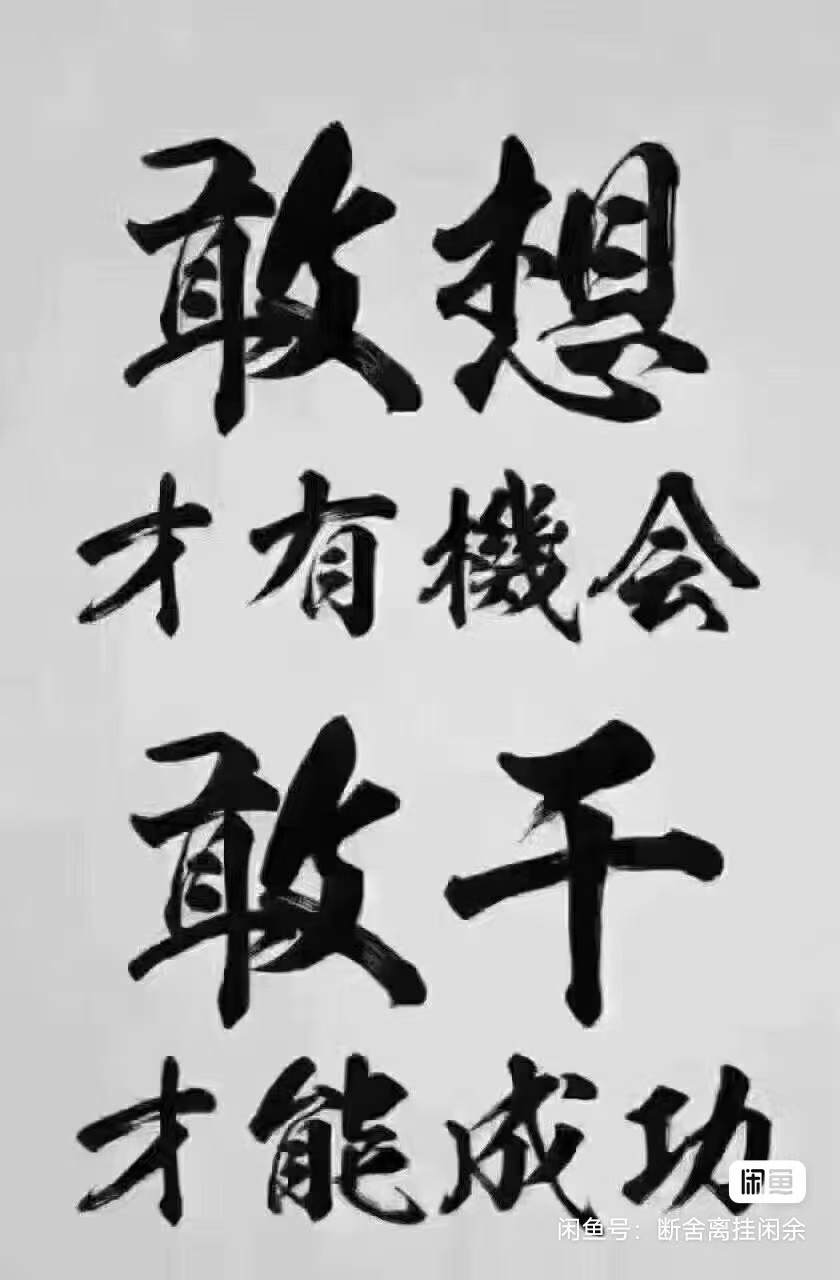 敢想
才有機会
敢干
才能成功
闲鱼
闲鱼号：断舍离挂闲余